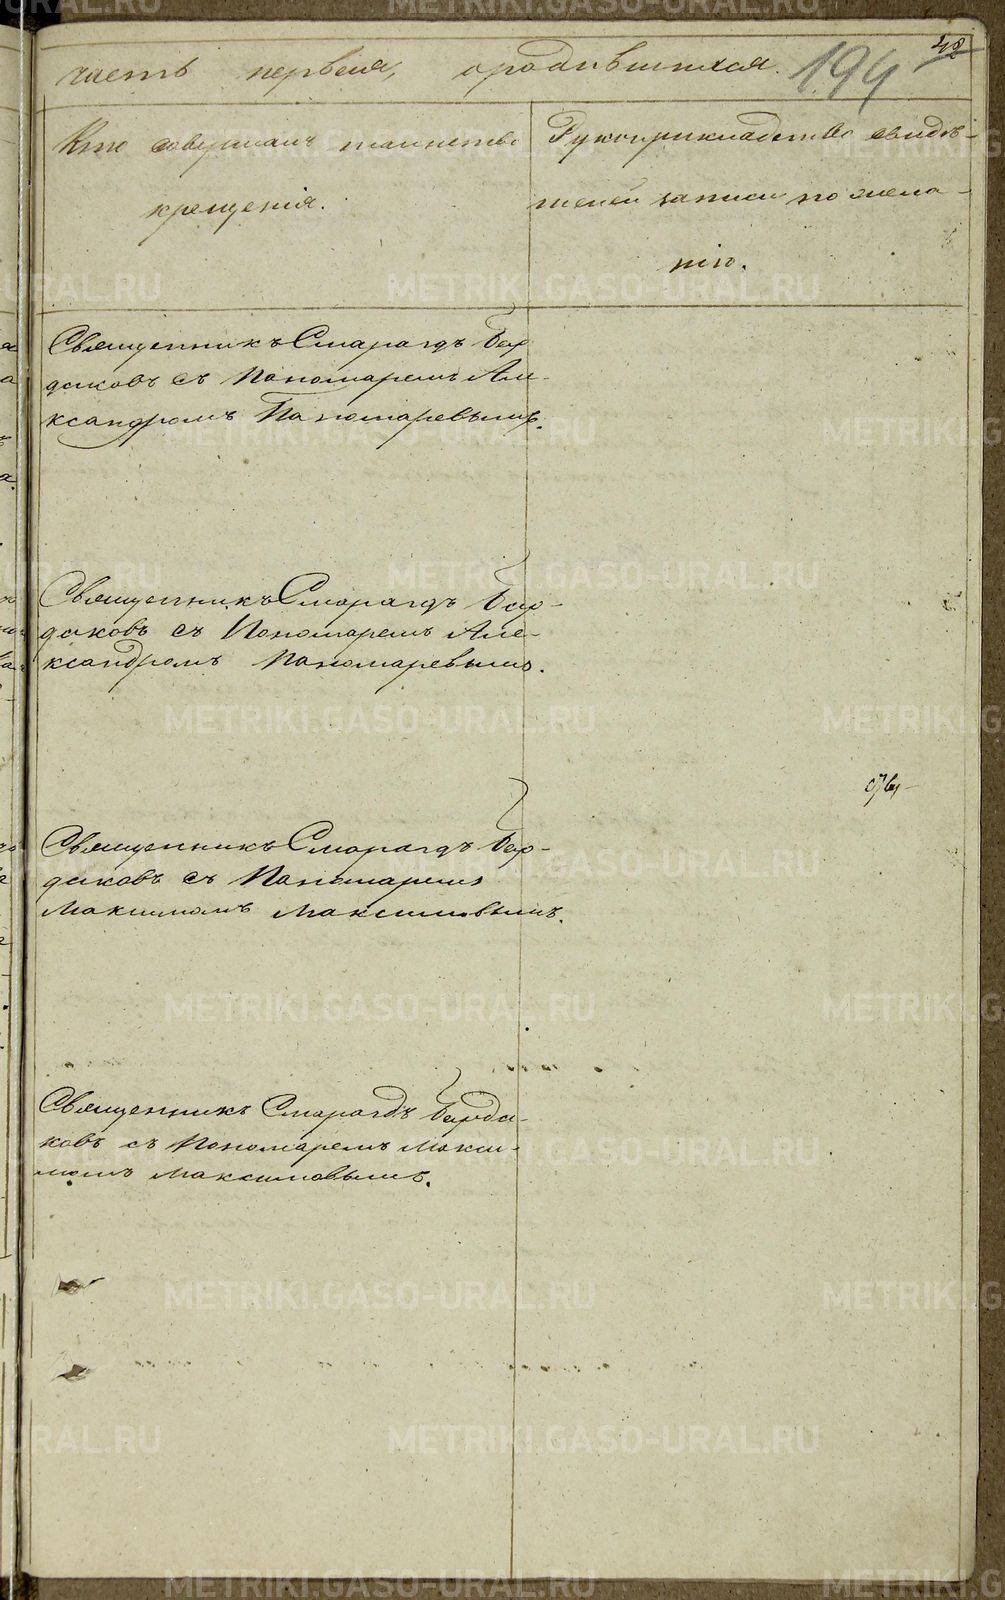 часть первая, о родившихся. 194 48
Кто совершалъ таинство
крещенія.
Рукоприкладство свидѣ-
телей записи по жела-
нію.
Священникъ Смарагдъ Бар
даковъ съ Пономаремъ Але-
ксандромъ Пономаревымъ.
Священникъ Смарагдъ Бар-
даковъ съ Пономаремъ Але-
ксандромъ Пономаревымъ.
Священникъ Смарагдъ Бар-
даковъ съ Пономаремъ
Максимомъ Максимовымъ.
Священникъ Смарагдъ Барда-
ковъ съ Пономаремъ Макси-
момъ Максимовымъ.
METRIKI.GASO-URAL.RU